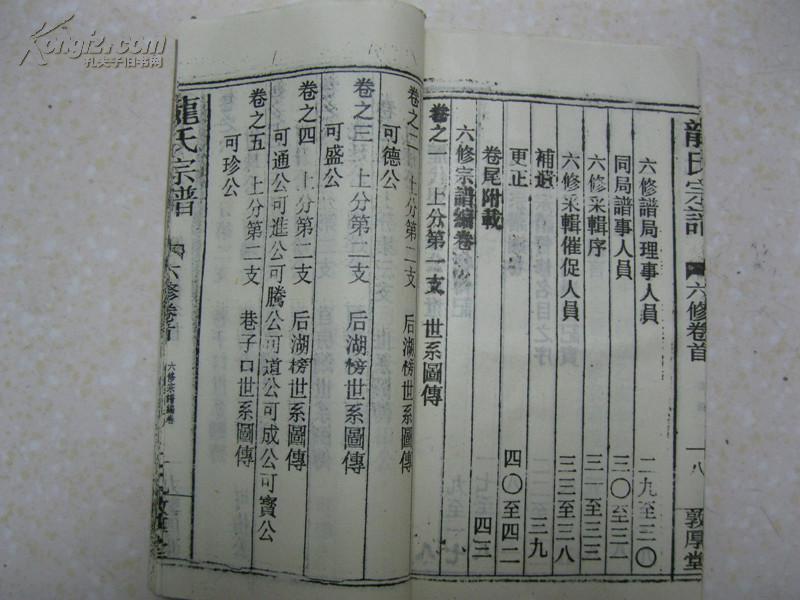 龍氏宗譜 六修卷首 一八 敦厚堂
六修譜局理事人員 二九至三〇
同局譜事人員
六修采輯序 三一至三三
六修采輯催促人員 三三至三八
補遺 三九
更正 四〇至四二
卷尾附載 四三
六修宗譜編卷
卷之一 上分第一支 世系圖傳
卷之二 上分第二支 后湖榜世系圖傳
可德公
卷之三 上分第二支 后湖榜世系圖傳
可盛公
卷之四 上分第二支 后湖榜世系圖傳
可通公可進公可騰公可道公可成公可寶公
卷之五 上分第二支 巷子口世系圖傳
可珍公
龍氏宗譜 六修卷首 六修宗譜編卷
Kongfz.com
孔夫子旧书网